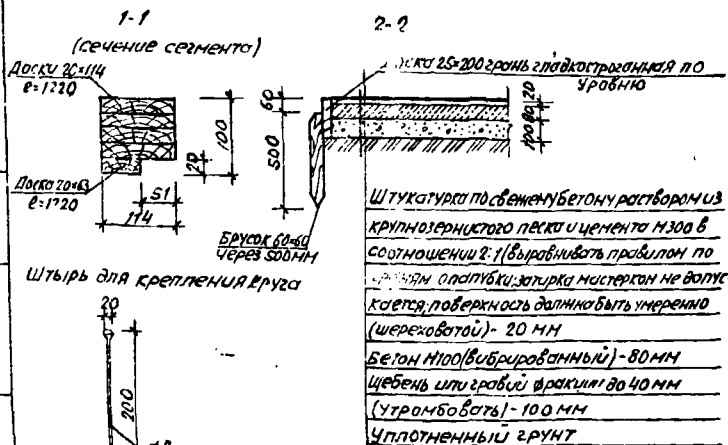 1-1
(сечение сегмента)
Доски 20×114
ℓ=1220
100
20
Доска 20×63
ℓ=1220
51
114
2-2
Доска 25×200 грань гладкостроганная по
уровню
60
500
20
80
100
Брусок 60×60
через 500мм
Штукатурка по свежему бетону раствором из
крупнозернистого песка и цемента М300 в
соотношении 2:1 (выравнивать правилом по
опалубки; затирка мастерком не допус
кается; поверхность должна быть умеренно
(шероховатой) - 20 мм
Бетон М100 (вибрированный) - 80мм
Щебень или гравий фракции до 40мм
(утрамбовать) - 100 мм
Уплотненный грунт
Штырь для крепления круга
20
200